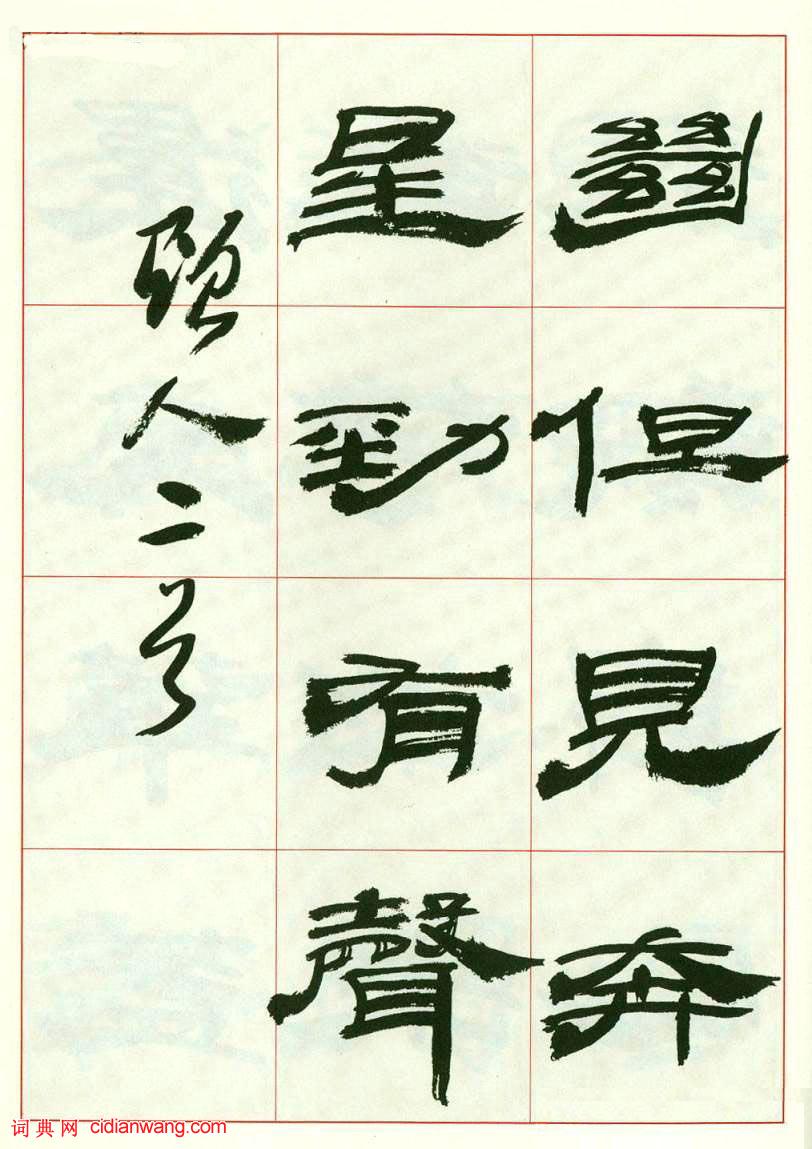 𢇍但見奔
星勁有聲
人二首
词典网 cidianwang.com